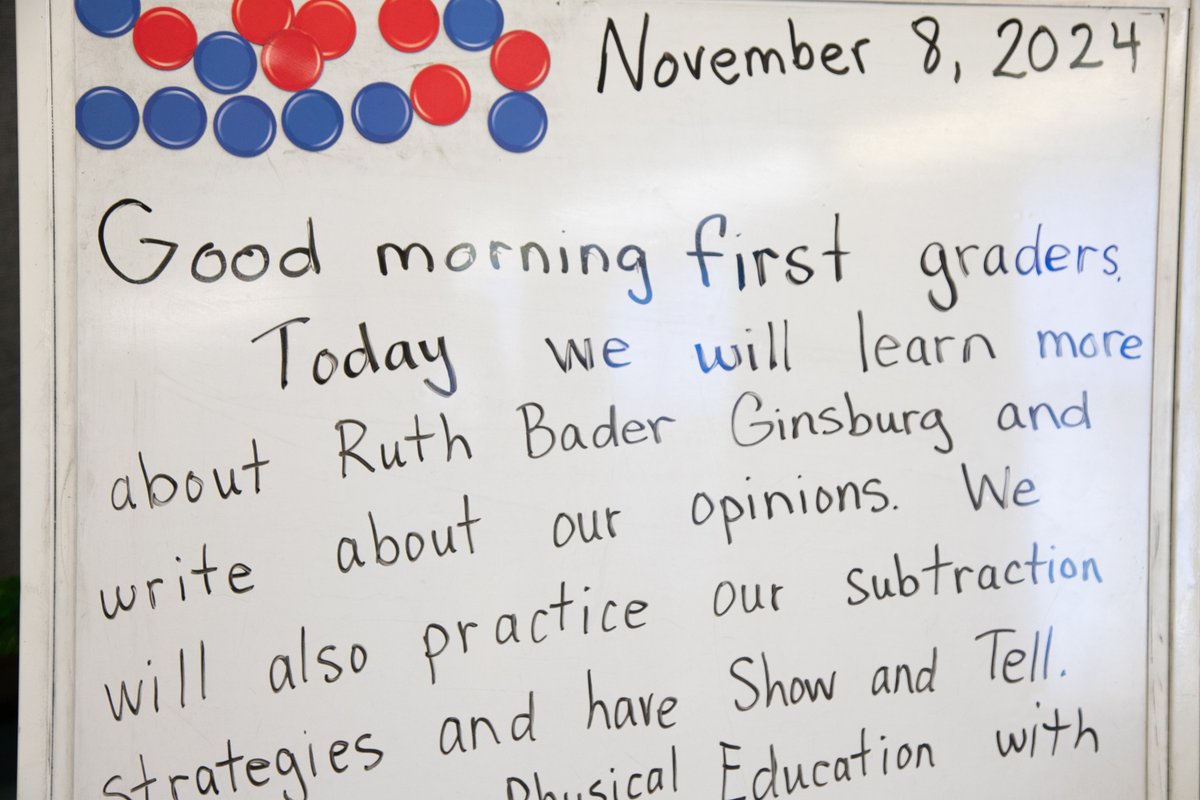 November 8, 2024
Good morning first graders.
Today we will learn more
about Ruth Bader Ginsburg and
write about our opinions. We
will also practice our subtraction
strategies and have Show and Tell.
Physical Education with